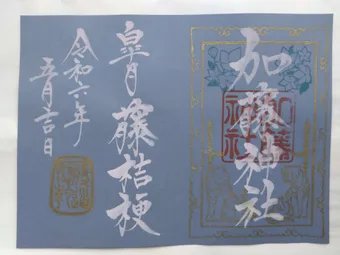 加藤神社
加藤
神社
皐月藤桔梗
令和六年
五月吉日